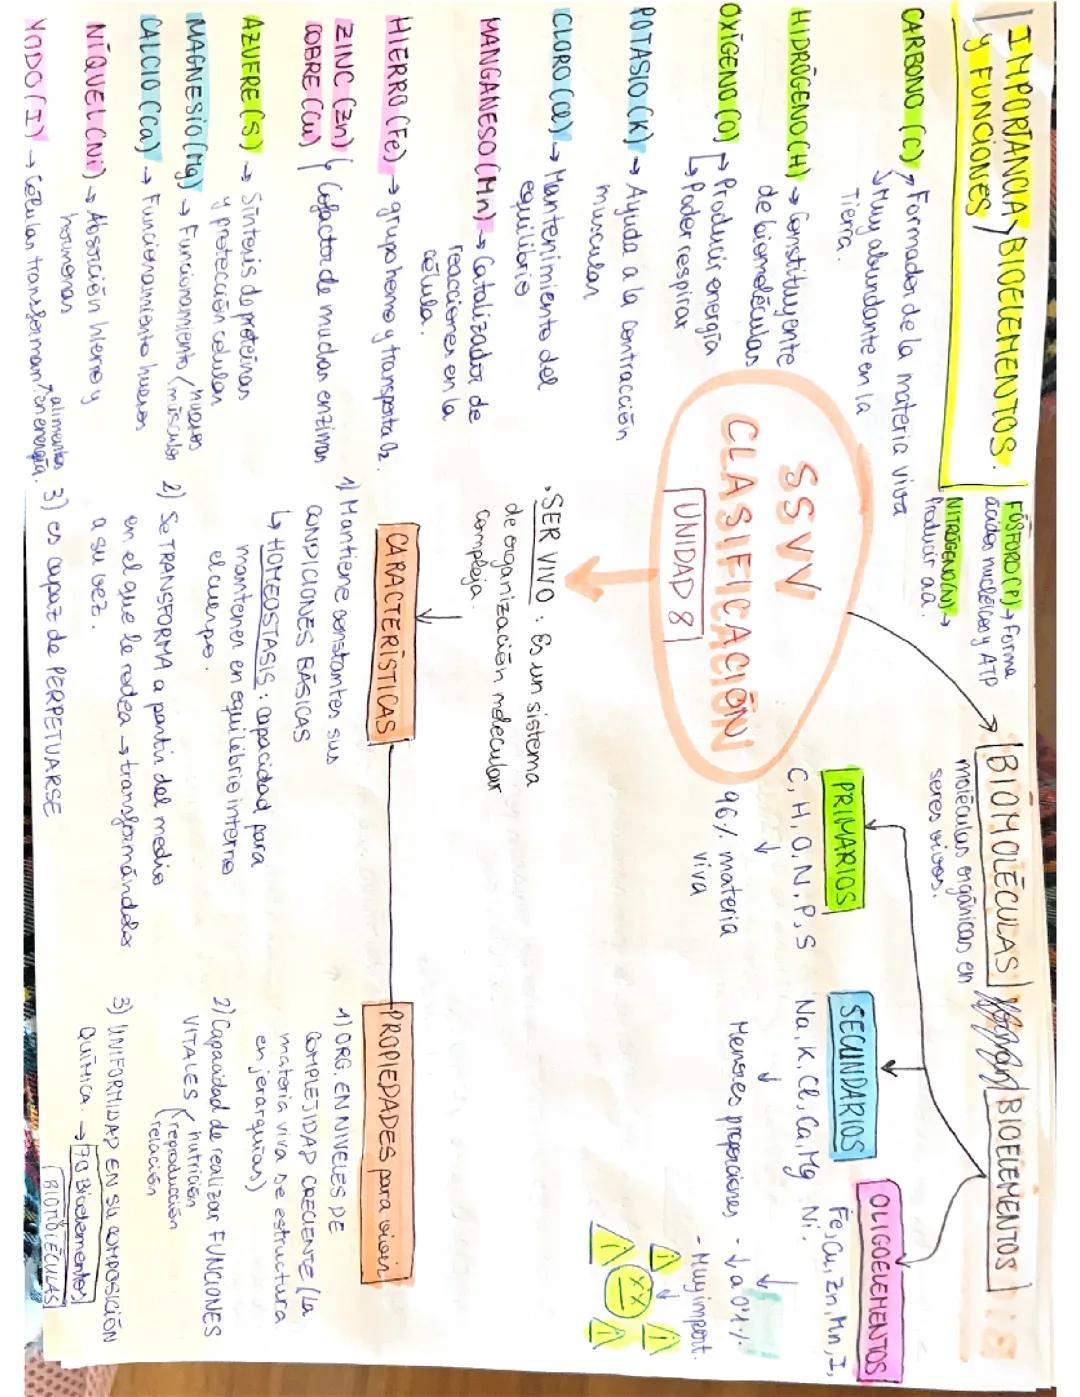 IMPORTANCIA BIOELEMENTOS.
y FUNCIONES
CARBONO (C) → Formador de la materia viva
↳ Muy abundante en la
Tierra.
HIDRÓGENO (H) → Constituyente
de biomoléculas
OXÍGENO (O) → Producir energía
↳ Poder respirar
POTASIO (K) → Ayuda a la contracción
muscular
CLORO (Cl) → Mantenimiento del
equilibrio
MANGANESO (Mn) → Catalizador de
reacciones en la
célula.
HIERRO (Fe) → grupo hemo y transporta O2.
ZINC (Zn)
COBRE (Cu)
Cofactor de muchas enzimas
AZUFRE (S) → Síntesis de proteínas
y protección celular
MAGNESIO (Mg) → Funcionamiento / huesos
músculos
CALCIO (Ca) → Funcionamiento huesos
NÍQUEL (Ni) → Absorción hierro y
hormonas
YODO (I) → Células transforman alimentos
en energía.
FÓSFORO (P) → Forma
ácidos nucleicos y ATP
NITRÓGENO (N) →
Producir aa.
SSVV
CLASIFICACIÓN
UNIDAD 8
· SER VIVO : Es un sistema
de organización molecular
compleja.
CARACTERÍSTICAS
1) Mantiene constantes sus
CONDICIONES BÁSICAS
↳ HOMEOSTASIS : capacidad para
mantener en equilibrio interno
el cuerpo.
2) Se TRANSFORMA a partir del medio
en el que le rodea → transformándolo
a su vez.
3) es capaz de PERPETUARSE
BIOMOLÉCULAS
moléculas orgánicas en
seres vivos.
BIOELEMENTOS
PRIMARIOS
C, H, O, N, P, S
↓
96% materia
viva
SECUNDARIOS
Na, K, Cl, Ca, Mg
↓
Menores proporciones
OLIGOELEMENTOS
Fe, Cu, Zn, Mn, I,
Ni.
↓
- ↓ a 0'1%
- Muy import.
PROPIEDADES para vivir
1) ORG. EN NIVELES DE
COMPLEJIDAD CRECIENTE (la
materia viva se estructura
en jerarquías)
2) Capacidad de realizar FUNCIONES
VITALES
nutrición
reproducción
relación
3) UNIFORMIDAD EN SU COMPOSICIÓN
QUÍMICA. → 70 Bioelementos
BIOMOLÉCULAS